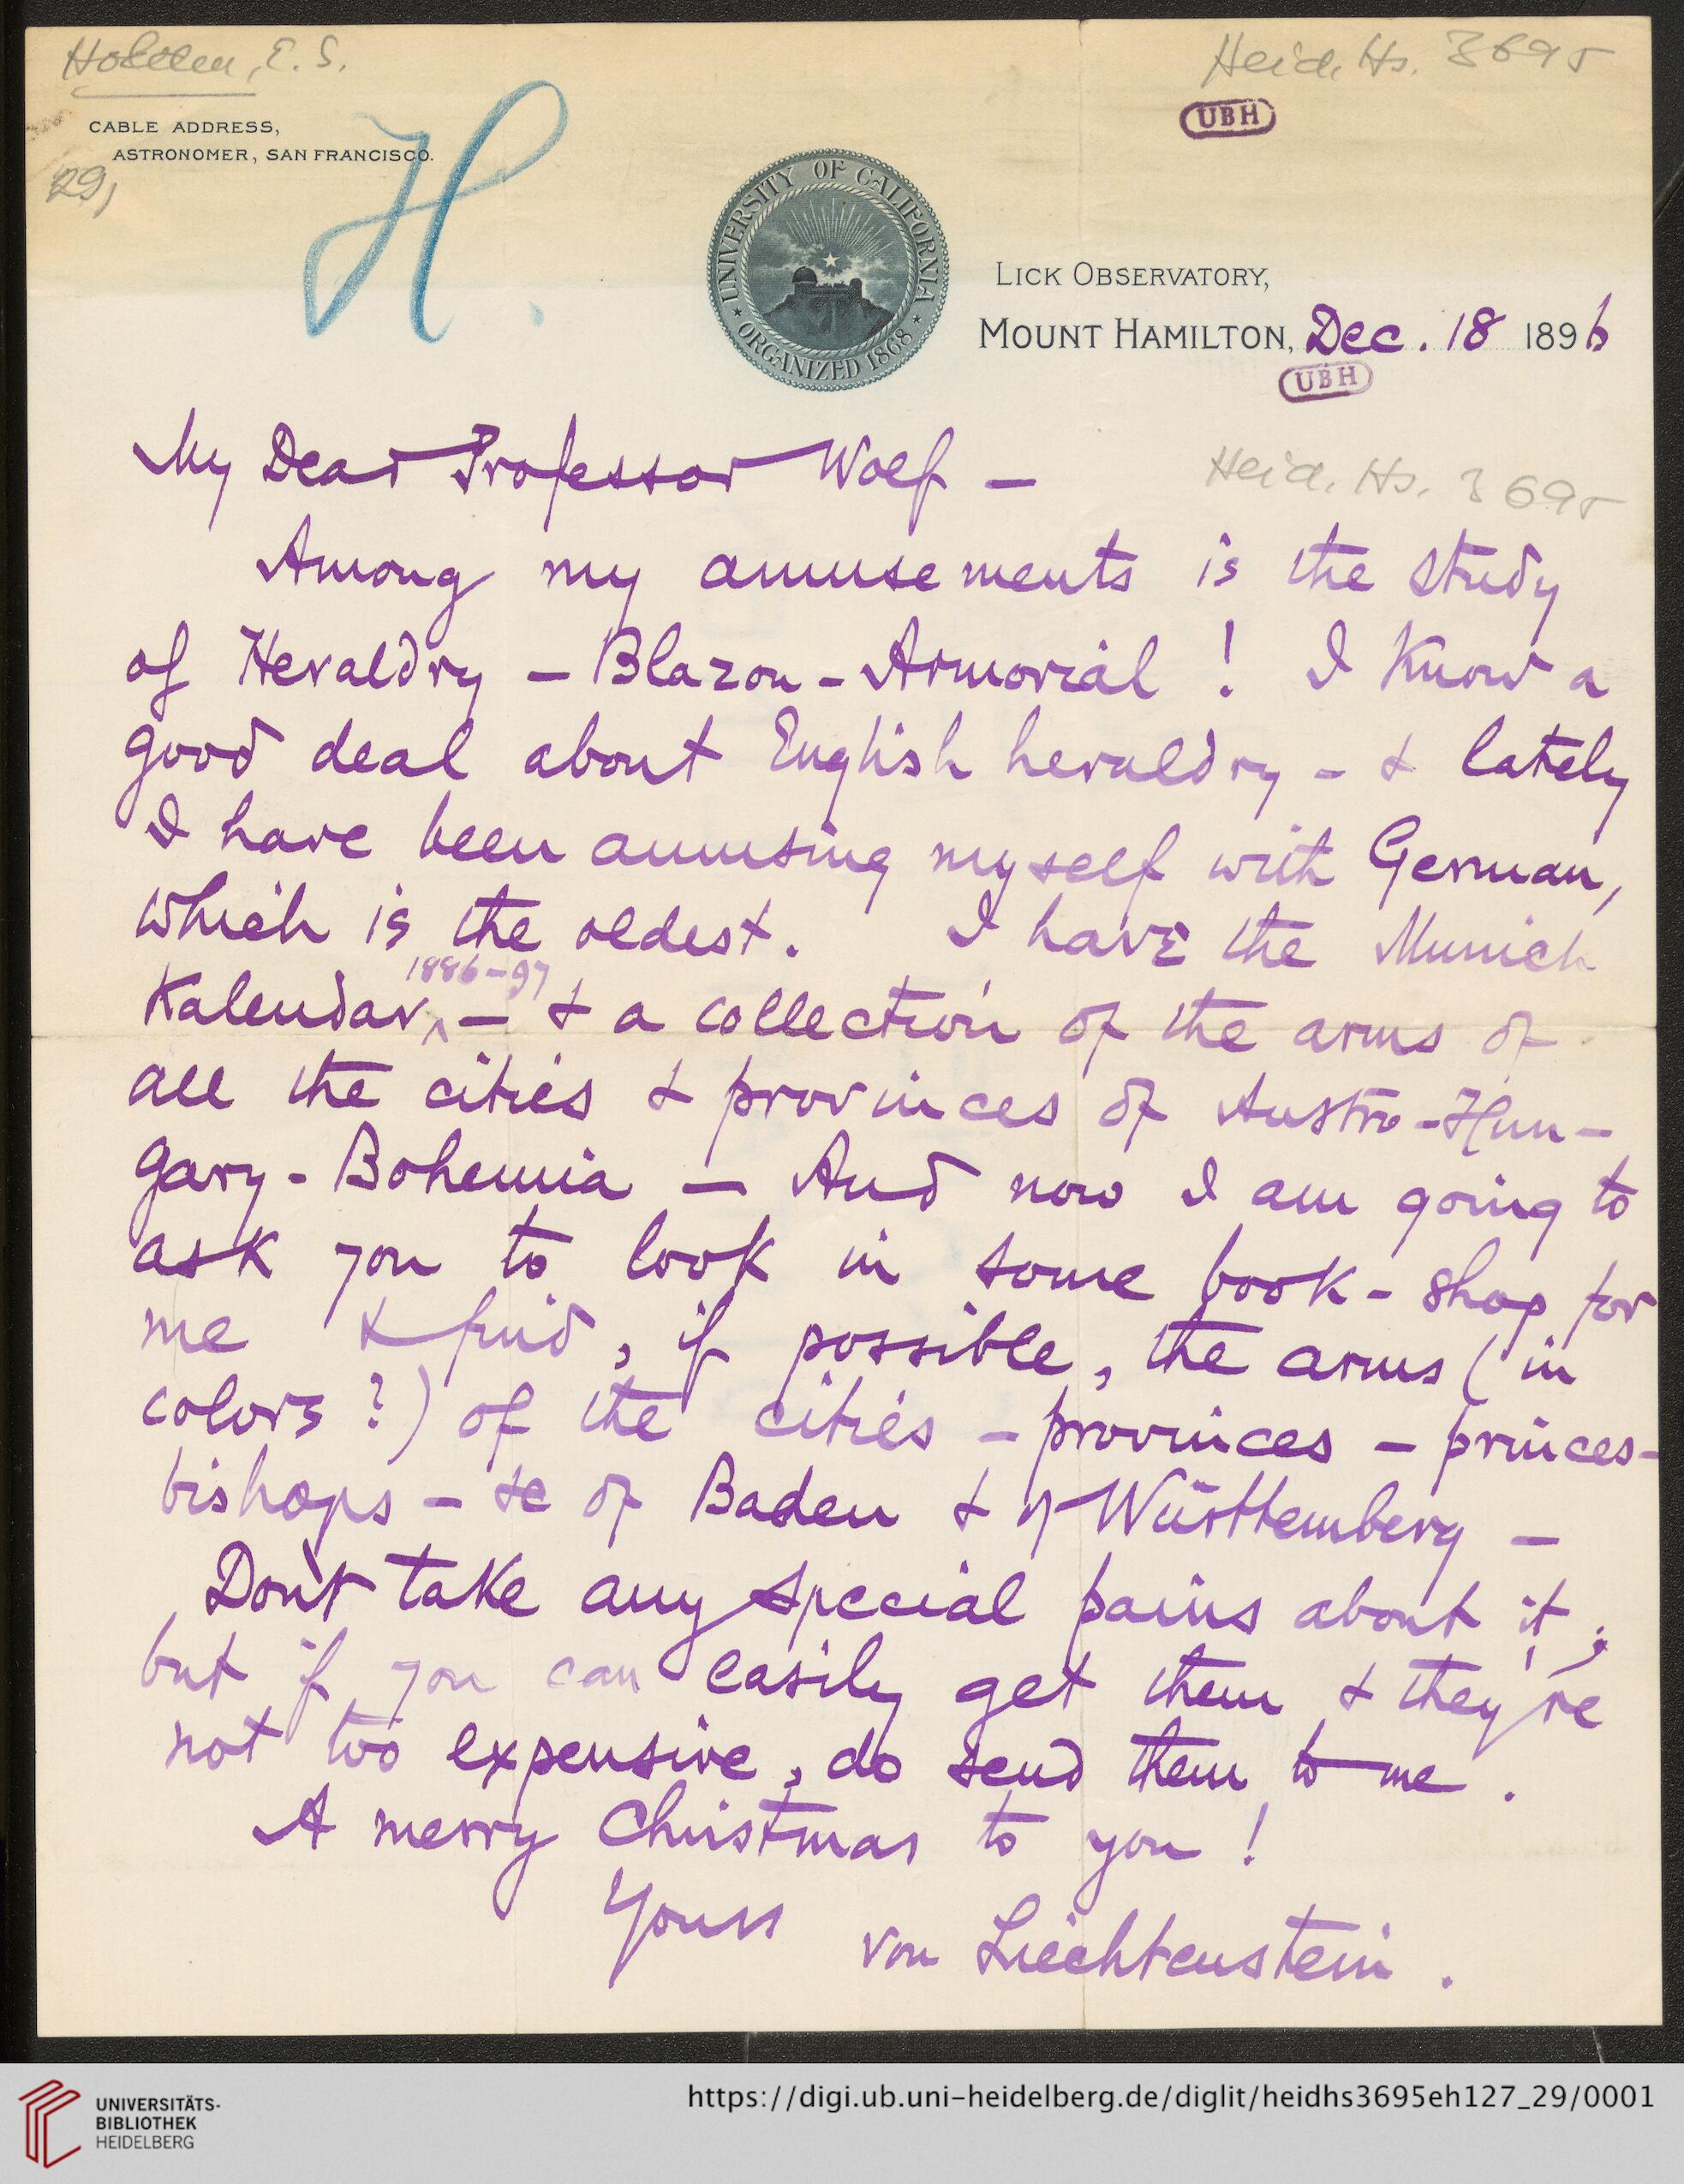 Holden, E. S.
Heid. Hs. 3695
UBH
CABLE ADDRESS,
ASTRONOMER, SAN FRANCISCO.
29,
H.
UNIVERSITY OF CALIFORNIA
ORGANIZED 1868
LICK OBSERVATORY,
MOUNT HAMILTON, Dec. 18 1896
UBH
My Dear Professor Wolf –
Heid. Hs. 3695
Among my amusements is the study
of Heraldry – Blazon – Armorial ! I know a
good deal about English heraldry – & lately
I have been amusing myself with German,
which is the oldest. I have the Munich
1886–97
Kalendar ^ – & a collection of the arms of
all the cities & provinces of Austro-Hun-
gary - Bohemia – And now I am going to
ask you to look in some book-shop for
me & find, if possible, the arms (in
colors ?) of the cities – provinces – princes-
bishops – &c of Baden & of Württemberg –
Don't take any special pains about it ;
but if you can easily get them & they're
not too expensive, do send them to me .
A merry Christmas to you !
Yours
von Liechtenstein .
UNIVERSITÄTS-
BIBLIOTHEK
HEIDELBERG
https://digi.ub.uni-heidelberg.de/diglit/heidhs3695eh127_29/0001